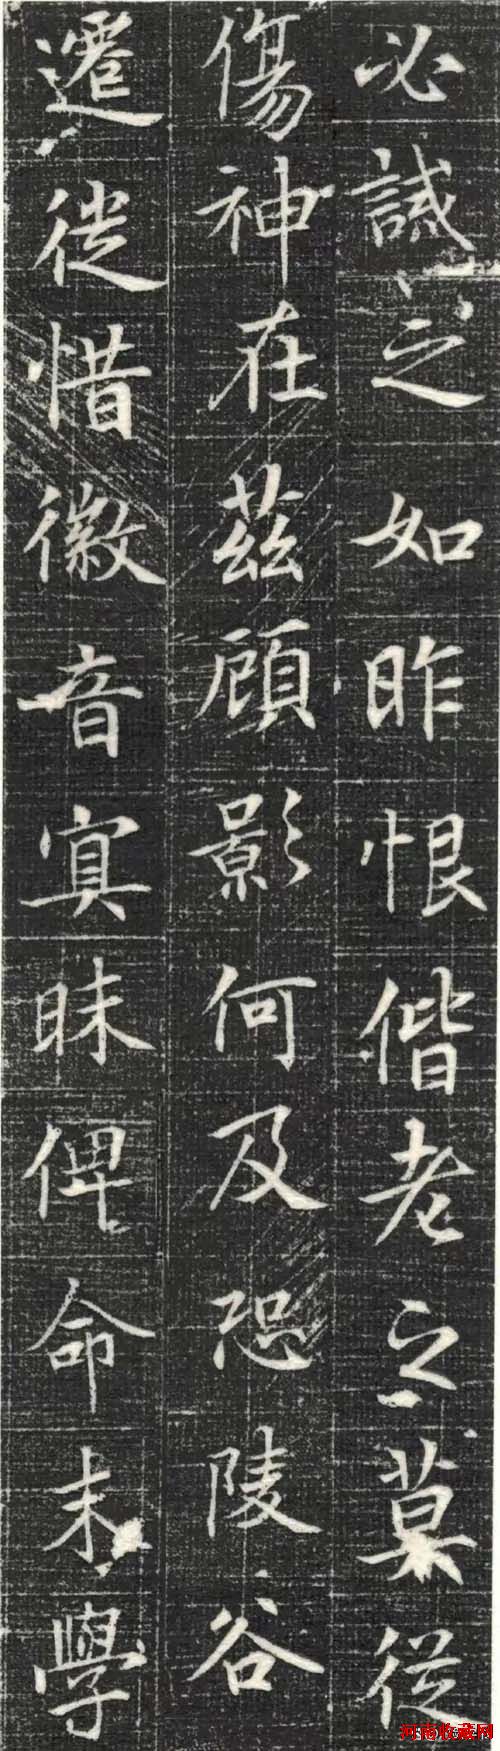 必誡之如昨恨偕老之莫從
傷神在茲顧影何及恐陵谷
遷徙惜徽音寘昧俾命末學
河南收藏网